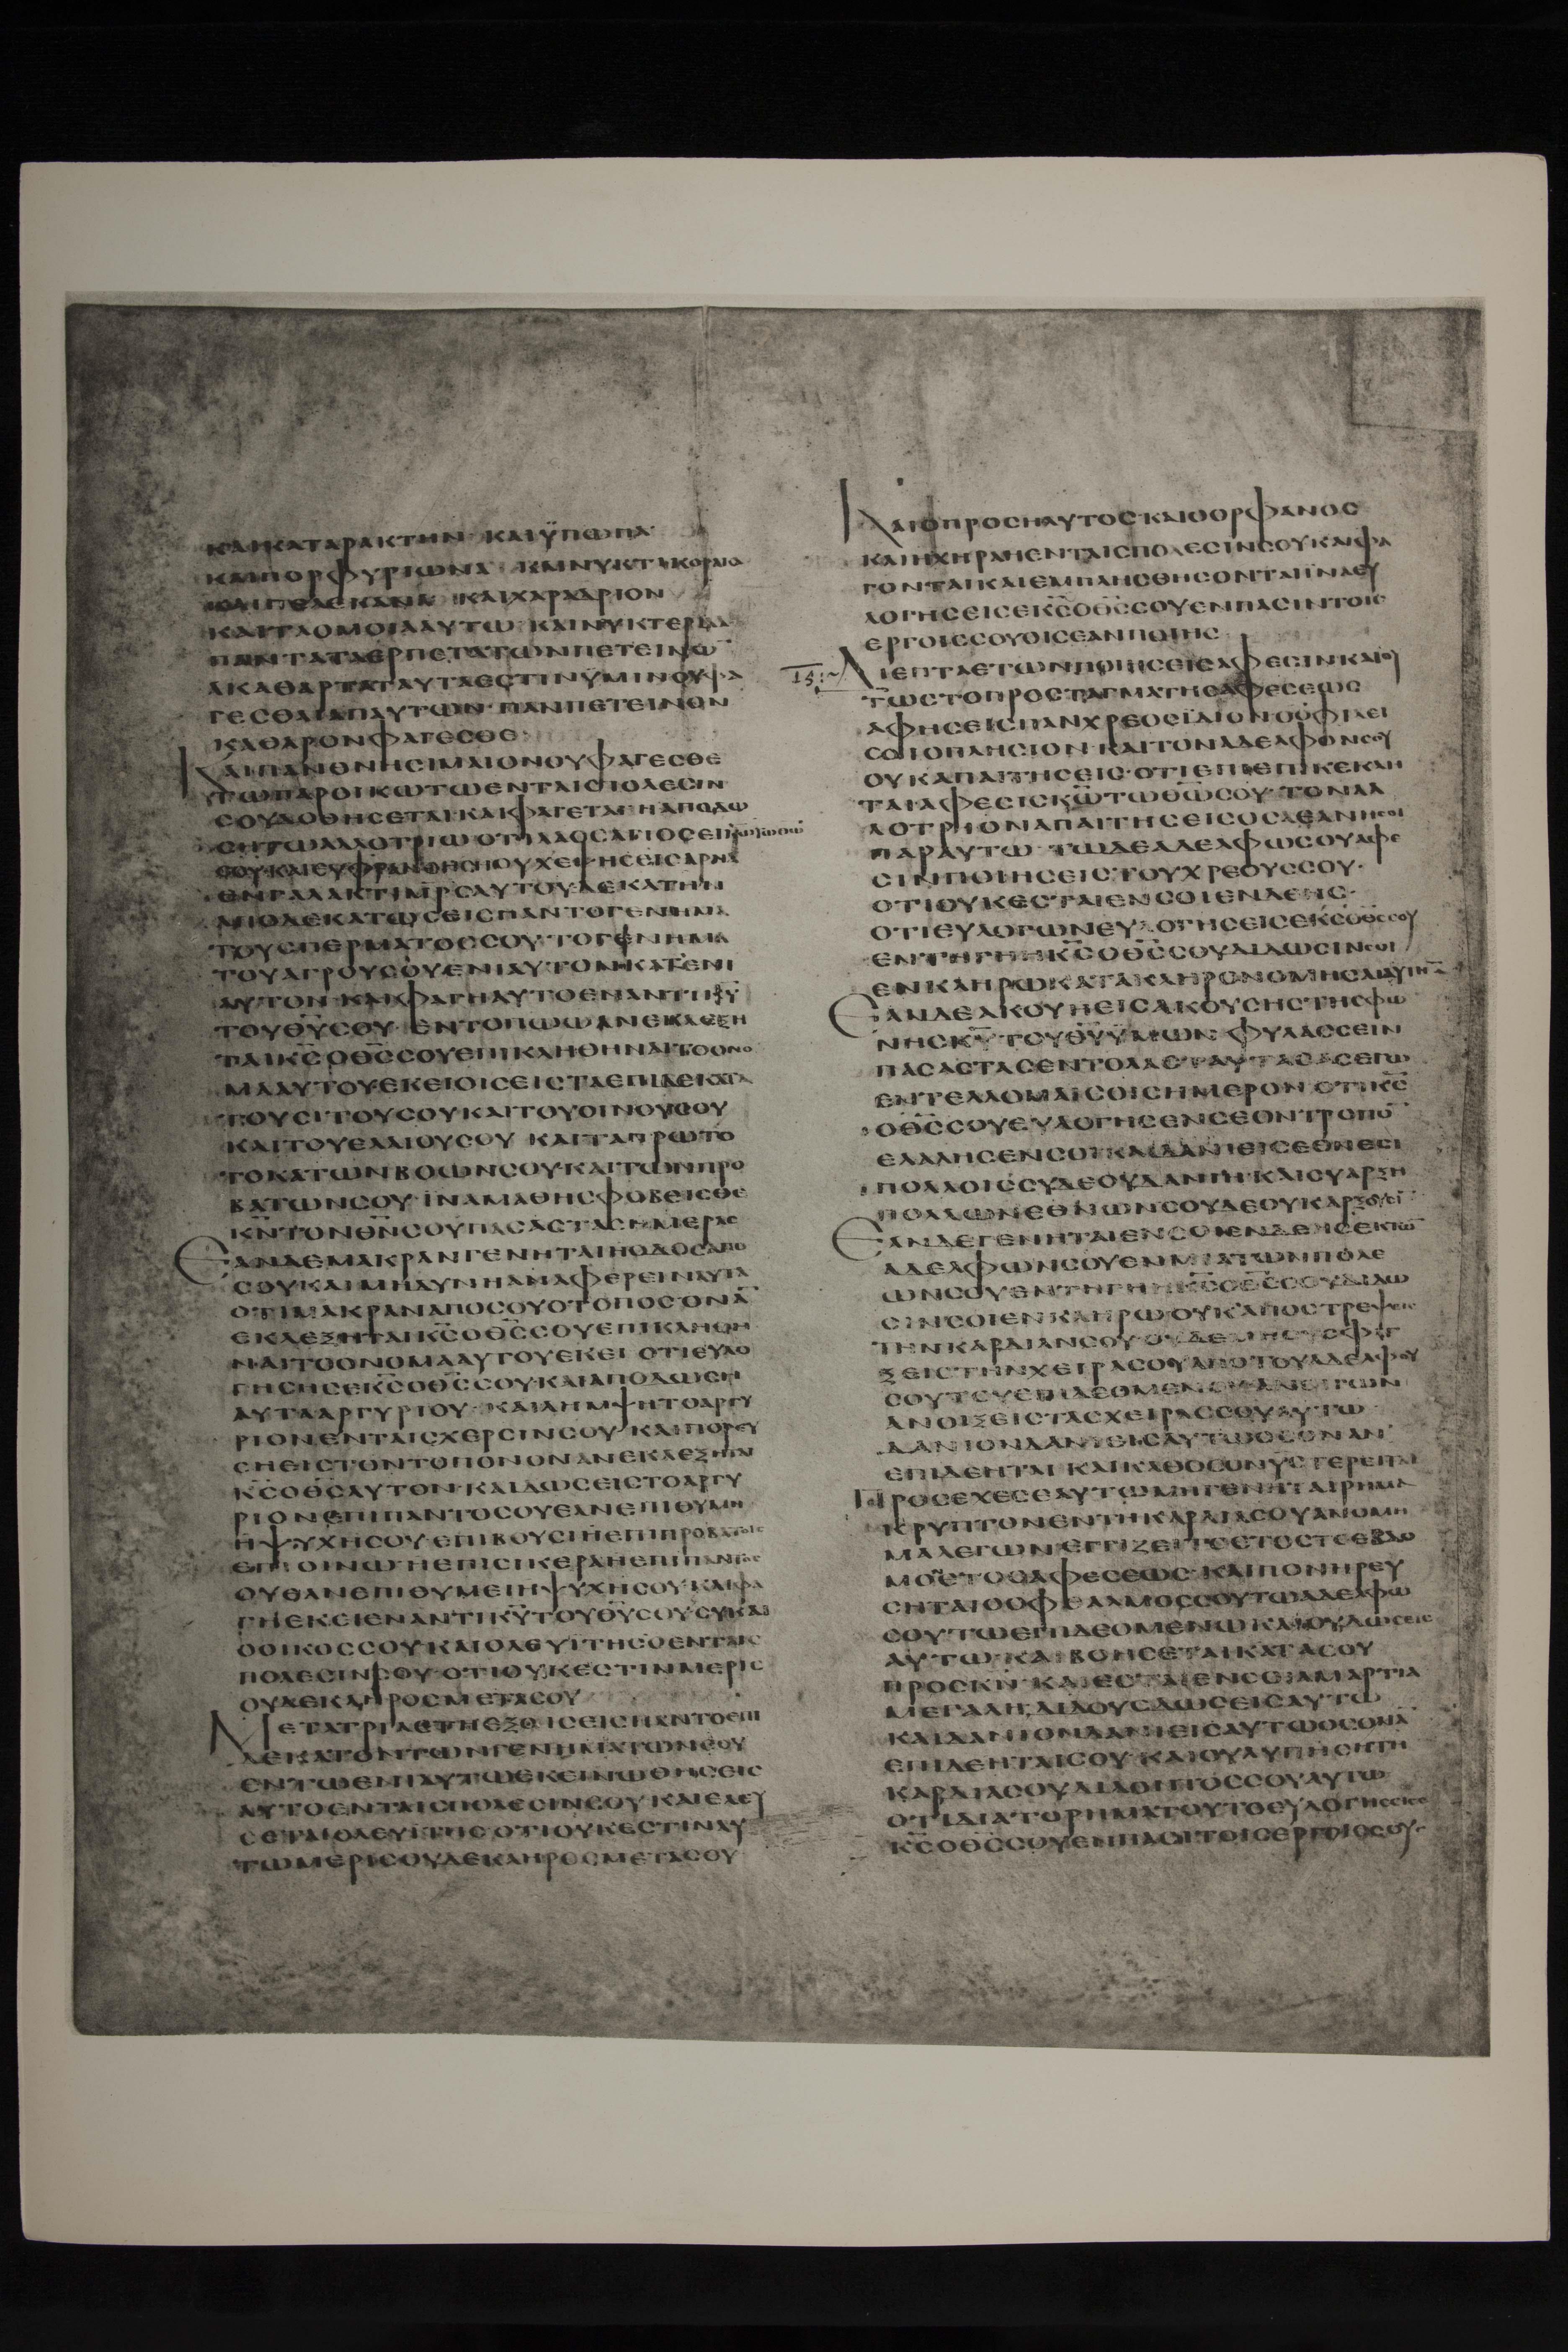 ΚΑΙΚΑΤΑΡΑΚΤΗΝ· ΚΑΙΫΠΩΠΑ
ΚΑΙΠΟΡΦΥΡΙΩΝΑ· ΚΑΙΝΥΚΤΙΚΟΡΑΚΑ
ΚΑΙΠΕΛΕΚΑΝΑ ΚΑΙΧΑΡΑΔΡΙΟΝ
ΚΑΙΤΑΟΜΟΙΑΑΥΤΩ· ΚΑΙΝΥΚΤΕΡΙΔΑ
ΠΑΝΤΑΤΑΕΡΠΕΤΑΤΩΝΠΕΤΕΙΝΩ̄
ΑΚΑΘΑΡΤΑΤΑΥΤΑΕСΤΙΝΫΜΙΝΟΥΦΑ
ΓΕСΘΑΙΑΠΑΥΤΩΝ· ΠΑΝΠΕΤΕΙΝΟΝ
ΚΑΘΑΡΟΝΦΑΓΕСΘΕ
ΚΑΙΠΑΝΘΝΗСΙΜΑΙΟΝΟΥΦΑΓΕСΘΕ
ΤΩΠΑΡΟΙΚΩΤΩΕΝΤΑΙСΠΟΛΕСΙΝ
СΟΥΔΟΘΗСΕΤΑΙΚΑΙΦΑΓΕΤΑΙ· ΗΑΠΟΔΩ
СΗΤΩΑΛΛΟΤΡΙΩΟΤΙΛΑΟСΑΓΙΟСΕΙ
ΕΝΓΑΛΑΚΤΙΜΡ̄СΑΥΤΟΥ·ΔΕΚΑΤΗΝ
ΑΠΟΔΕΚΑΤΩСΕΙСΠΑΝΤΟΓΕΝΗΜΑ
ΤΟΥСΠΕΡΜΑΤΟССΟΥ·ΤΟΓΕΝΗΜΑ
ΤΟΥΑΓΡΟΥСΟΥΕΝΙΑΥΤΟΝΚΑΤΕΝΙ
ΑΥΤΟΝ· ΚΑΙΦΑΓΗΑΥΤΟΕΝΑΝΤΙΚ̄Ῡ
ΤΟΥΘ̄Ῡ СΟΥ· ΕΝΤΟΠΩΩΑΝΕΚΛΕΞΗ
ΤΑΙΚ̄С̄ΟΘ̄С̄СΟΥΕΠΙΚΛΗΘΗΝΑΙΤΟΟΝΟ
ΜΑΑΥΤΟΥΕΚΕΙΟΙСΕΙСΤΑΕΠΙΔΕΚΑΤΑ
ΤΟΥСΙΤΟΥСΟΥΚΑΙΤΟΥΟΙΝΟΥСΟΥ
ΚΑΙΤΟΥΕΛΑΙΟΥСΟΥ ΚΑΙΤΑΠΡΩΤΟ
ΤΟΚΑΤΩΝΒΟΩΝСΟΥ·ΚΑΙΤΩΝΠΡΟ
ΒΑΤΩΝСΟΥ· ΙΝΑΜΑΘΗСΦΟΒΕΙСΘΕ
Κ̄Ν̄ΤΟΝΘ̄Ν̄СΟΥΠΑСΑСΤΑСΗΜΕΡΑС
ΕΑΝΔΕΜΑΚΡΑΝΓΕΝΗΤΑΙΗΟΔΟСΑΠΟ
СΟΥΚΑΙΜΗΔΥΝΗΑΝΑΦΕΡΕΙΝΑΥΤΑ
ΟΤΙΜΑΚΡΑΝΑΠΟСΟΥΟΤΟΠΟСΟΝᾹ
ΕΚΛΕΞΗΤΑΙΚ̄С̄ΟΘ̄С̄СΟΥΕΠΙΚΛΗΘΗ
ΝΑΙΤΟΟΝΟΜΑΑΥΤΟΥΕΚΕΙ ΟΤΙΕΥΛΟ
ΓΗСΗСΕΚ̄С̄ΟΘ̄С̄СΟΥ·ΚΑΙΑΠΟΔΩСΗ
ΑΥΤΑΑΡΓΥΡΙΟΥ· ΚΑΙΛΗΜΨΗΤΟΑΡΓΥ
ΡΙΟΝΕΝΤΑΙСΧΕΡСΙΝСΟΥ· ΚΑΙΠΟΡΕΥ
СΗΕΙСΤΟΝΤΟΠΟΝΟΝΑΝΕΚΛΕΞΗΤΑΙ
Κ̄С̄ΟΘ̄С̄ΑΥΤΟΝ· ΚΑΙΔΩСΕΙСΤΟΑΡΓΥ
ΡΙΟΝΕΠΙΠΑΝΤΟСΟΥΕΑΝΕΠΙΘΥΜΗ
ΗΨΥΧΗСΟΥ·ΕΠΙΒΟΥСΙΗΕΠΙΠΡΟΒΑΤΟΙС
ΕΠΙΟΙΝΩ· ΗΕΠΙСΙΚΕΡΑΗΕΠΙΠΑΝΤΟС
ΟΥΘΑΝΕΠΙΘΥΜΕΙΗΨΥΧΗСΟΥ·ΚΑΙΦΑ
ΓΗΕΚΕΙΕΝΑΝΤΙΚ̄Ῡ ΤΟΥΘ̄Ῡ СΟΥ·СΥΚΑΙ
ΟΟΙΚΟССΟΥ·ΚΑΙΟΛΕΥΙΤΗСΟΕΝΤΑΙС
ΠΟΛΕСΙΝСΟΥ·ΟΤΙΟΥΚΕСΤΙΝΜΕΡΙС
ΟΥΔΕΚΛΗΡΟСΜΕΤΑСΟΥ
ΜΕΤΑΤΡΙΑΕΤΗΕΞΟΙСΕΙСΠΑΝΤΟΕΠΙ
ΔΕΚΑΤΟΝΤΩΝΓΕΝΗΜΑΤΩΝСΟΥ
ΕΝΤΩΕΝΙΑΥΤΩΕΚΕΙΝΩΘΗСΕΙС
ΑΥΤΟΕΝΤΑΙСΠΟΛΕСΙΝСΟΥ·ΚΑΙΕΛΕΥ
СΕΤΑΙΟΛΕΥΙΤΗС·ΟΤΙΟΥΚΕСΤΙΝΑΥ
ΤΩΜΕΡΙСΟΥΔΕΚΛΗΡΟСΜΕΤΑСΟΥ
ΚΑΙΟΠΡΟСΗΛΥΤΟС·ΚΑΙΟΟΡΦΑΝΟС
ΚΑΙΗΧΗΡΑΗΕΝΤΑΙСΠΟΛΕСΙΝСΟΥΚΑΙΦΑ
ΓΟΝΤΑΙΚΑΙΕΜΠΛΗСΘΗСΟΝΤΑΙΪΝΑΕΥ
ΛΟΓΗСΕΙСΕΚ̄С̄ΟΘ̄С̄СΟΥΕΝΠΑСΙΝΤΟΙС
ΕΡΓΟΙССΟΥΟΙСΕΑΝΠΟΙΗС
ΔΙΕΠΤΑΕΤΩΝΠΟΙΗСΕΙСΑΦΕСΙΝΚΑΙΟΥ
ΤΩСΤΟΠΡΟСΤΑΓΜΑΤΗСΑΦΕСΕΩС
ΑΦΗСΕΙСΠΑΝΧΡΕΟСΪΔΙΟΝΟΟΦΙΛΕΙ
СΟΙΟΠΛΗСΙΟΝ·ΚΑΙΤΟΝΑΔΕΛΦΟΝСΟΥ
ΟΥΚΑΠΑΙΤΗСΕΙС·ΟΤΙΕΠΙΚΕΚΛΗ
ΤΑΙΑΦΕСΙСΚ̄Ω̄ΤΩΘ̄Ω̄СΟΥ· ΤΟΝΑΛ
ΛΟΤΡΙΟΝΑΠΑΙΤΗСΕΙСΟСΑΕΑΝΗСΟΙ
ΠΑΡΑΥΤΩ· ΤΩΔΕΑΔΕΛΦΩСΟΥΑΦΕ
СΙΝΠΟΙΗСΕΙС·ΤΟΥΧΡΕΟΥССΟΥ·
ΟΤΙΟΥΚΕСΤΑΙΕΝСΟΙΕΝΔΕΗС·
ΟΤΙΕΥΛΟΓΩΝΕΥΛΟΓΗСΕΙСΕΚ̄С̄ΟΘ̄С̄СΟΥ
ΕΝΤΗΓΗΗΚ̄С̄ΟΘ̄С̄СΟΥΔΙΔΩСΙΝСΟΙ
ΕΝΚΛΗΡΩΚΑΤΑΚΛΗΡΟΝΟΜΗСΑΙΑΥΤΗ̄
ΕΑΝΔΕΑΚΟΥΗΕΙСΑΚΟΥСΗСΤΗСΦΩ
ΝΗСΚ̄Ῡ ΤΟΥΘ̄Ῡ ΫΜΩΝ· ΦΥΛΑССΕΙΝ
ΠΑСΑСΤΑСΕΝΤΟΛΑСΤΑΥΤΑСΑСΕΓΩ
ΕΝΤΕΛΛΟΜΑΙСΟΙСΗΜΕΡΟΝ·ΟΤΙΚ̄С̄
ΟΘ̄С̄СΟΥΕΥΛΟΓΗСΕΝСΕΟΝΤΡΟΠΟ̄
ΕΛΑΛΗСΕΝСΟΙ·ΚΑΙΔΑΝΙΕΙСΕΘΝΕСΙ
ΠΟΛΛΟΙССΥΔΕΟΥΔΑΝΙΗ· ΚΑΙСΥΑΡΞΗ
ΠΟΛΛΩΝΕΘΝΩΝСΟΥΔΕΟΥΚΑΡΞΟΥСΙ
ΕΑΝΔΕΓΕΝΗΤΑΙΕΝСΟΙΕΝΔΕΗСΕΚΤΩ̄
ΑΔΕΛΦΩΝСΟΥΕΝΜΙΑΤΩΝΠΟΛΕ
ΩΝСΟΥΕΝΤΗΓΗΗΚ̄С̄ΟΘ̄С̄СΟΥΔΙΔΩ
СΙΝСΟΙΕΝΚΛΗΡΩ·ΟΥΚΑΠΟСΤΡΕΨΕΙС
ΤΗΝΚΑΡΔΙΑΝСΟΥ·ΟΥΔΕΜΗСΥСΦΙΓ
ΞΕΙСΤΗΝΧΕΙΡΑСΟΥΑΠΟΤΟΥΑΔΕΛΦΟΥ
СΟΥΤΟΥΕΠΙΔΕΟΜΕΝΟΥ·ΑΝΟΙΓΩΝ
ΑΝΟΙΞΕΙСΤΑСΧΕΙΡΑССΟΥΑΥΤΩ
ΔΑΝΙΟΝΔΑΝΙΕΙСΑΥΤΩΟСΟΝΑΝ
ΕΠΙΔΕΗΤΑΙ· ΚΑΙΚΑΘΟСΟΝΫСΤΕΡΕΙΤΑΙ
ΠΡΟСΕΧΕСΕΑΥΤΩΜΗΓΕΝΗΤΑΙΡΗΜΑ
ΚΡΥΠΤΟΝΕΝΤΗΚΑΡΔΙΑСΟΥΑΝΟΜΗ
ΜΑΛΕΓΩΝΕΓΓΙΖΕΙΤΟΕΤΟСΤΟΕΒΔΟ
ΜΟΕΤΟСΑΦΕСΕΩС· ΚΑΙΠΟΝΗΡΕΥ
СΗΤΑΙΟΟΦΘΑΛΜΟССΟΥΤΩΑΔΕΛΦΩ
СΟΥ·ΤΩΕΠΙΔΕΟΜΕΝΩΚΑΙΟΥΔΩСΕΙС
ΑΥΤΩ·ΚΑΙΒΟΗСΕΤΑΙΚΑΤΑСΟΥ
ΠΡΟСΚ̄Ν̄· ΚΑΙΕСΤΑΙΕΝСΟΙΑΜΑΡΤΙΑ
ΜΕΓΑΛΗ· ΔΙΔΟΥСΔΩСΕΙСΑΥΤΩ
ΚΑΙΔΑΝΙΟΝΔΑΝΙΕΙСΑΥΤΩΟСΟΝᾹ
ΕΠΙΔΕΗΤΑΙСΟΥ· ΚΑΙΟΥΛΥΠΗΘΗСΗ
ΚΑΡΔΙΑСΟΥΔΙΔΟΝΤΟССΟΥΑΥΤΩ
ΟΤΙΔΙΑΤΟΡΗΜΑΤΟΥΤΟΕΥΛΟΓΗСΕΙСΕ
Κ̄С̄ΟΘ̄С̄СΟΥΕΝΠΑСΙΤΟΙСΕΡΓΟΙССΟΥ